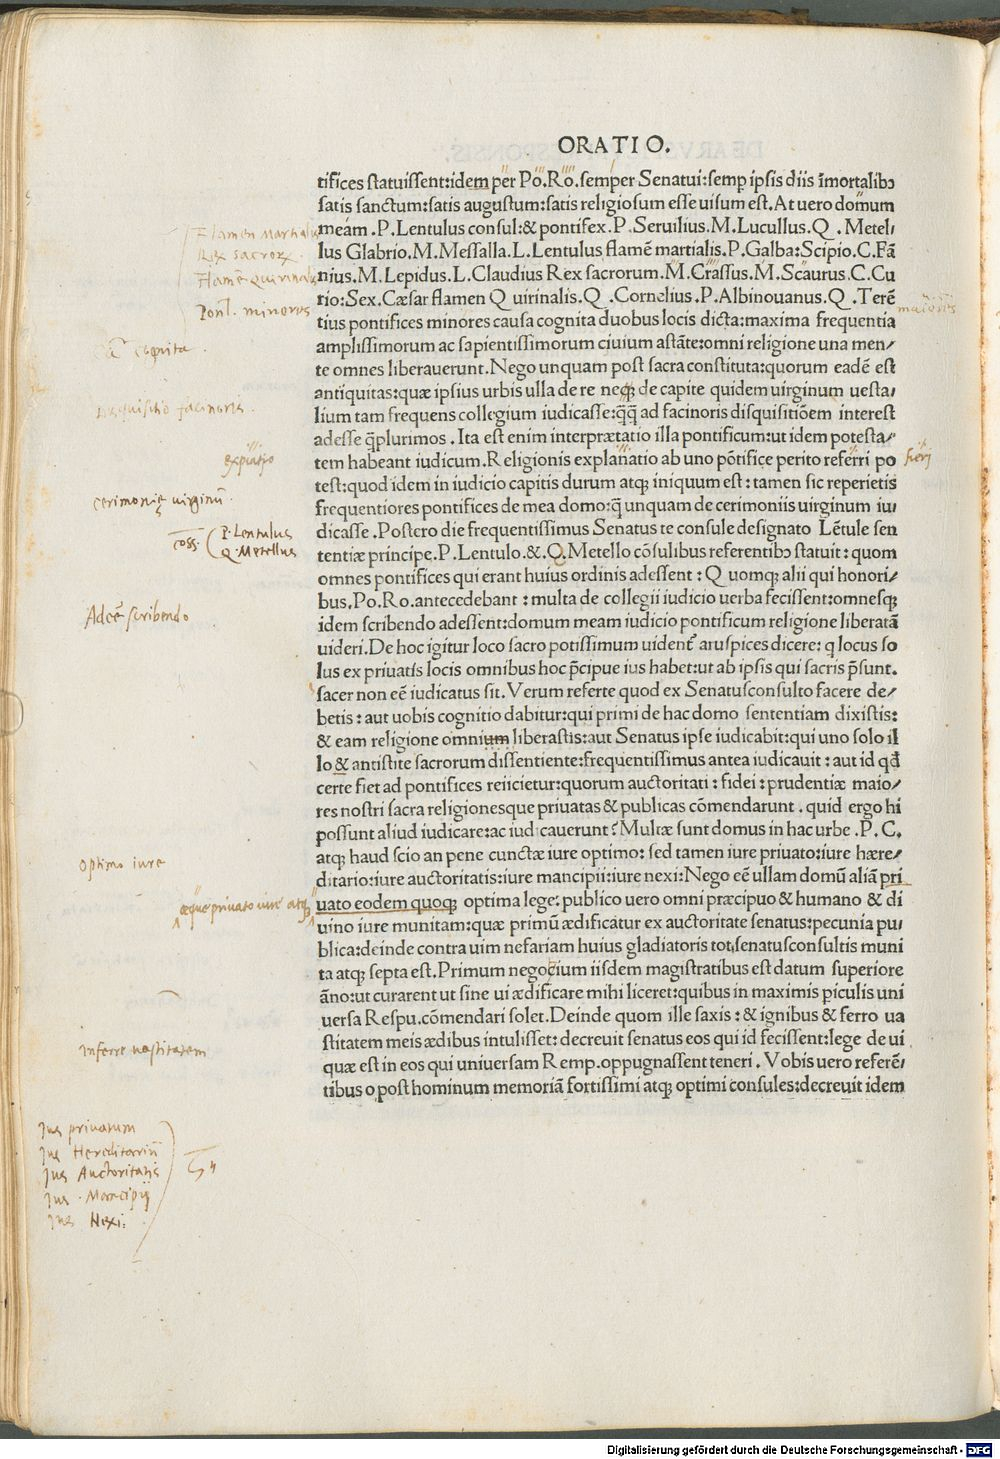 ORATIO.
tifices statuissent:idem per Po.Ro.semper Senatui:semp ipsis diis īmortalibꝯ
satis sanctum:satis augustum:satis religiosum esse uisum est.At uero domum
meam.P.Lentulus consul:& pontifex.P.Seruilius.M.Lucullus.Q.Metel/
lus Glabrio.M.Messalla.L.Lentulus flamē martialis.P.Galba:Scipio.C.Fā
nius.M.Lepidus.L.Claudius Rex sacrorum.M.Crassus.M.Scaurus.C.Cu
rio:Sex.Cæsar flamen Quirinalis.Q.Cornelius.P.Albinouanus.Q.Terē
tius pontifices minores causa cognita duobus locis dicta:maxima frequentia
amplissimorum ac sapientissimorum ciuium astāte:omni religione una men/
te omnes liberauerunt.Nego unquam post sacra constituta:quorum eadē est
antiquitas:quæ ipsius urbis ulla de re neqꝫ de capite quidem uirginum uesta/
lium tam frequens collegium iudicasse:q̄q̄ ad facinoris disquisitiōem interest
adesse q̄plurimos. Ita est enim interprætatio illa pontificum:ut idem potesta/
tem habeant iudicum.Religionis explanatio ab uno pōtifice perito referri po
test:quod idem in iudicio capitis durum atqꝫ iniquum est: tamen sic reperietis
frequentiores pontifices de mea domo:q̄ unquam de cerimoniis uirginum iu/
dicasse.Postero die frequentissimus Senatus te consule designato Lētule sen
tentiæ principe.P.Lentulo.&.Q.Metello cōsulibus referentibꝯ statuit: quom
omnes pontifices qui erant huius ordinis adessent: Quomqꝫ alii qui honori/
bus.Po.Ro.antecedebant: multa de collegii iudicio uerba fecissent:omnesqꝫ
idem scribendo adessent:domum meam iudicio pontificum religione liberatā
uideri.De hoc igitur loco sacro potissimum uident̄ aruspices dicere: q locus so
lus ex priuatis locis omnibus hoc p̄cipue ius habet:ut ab ipsis qui sacris p̄sunt.
sacer non eē iudicatus sit.Verum referte quod ex Senatusconsulto facere de/
betis: aut uobis cognitio dabitur:qui primi de hac domo sententiam dixistis:
& eam religione omnium liberastis:aut Senatus ipse iudicabit:qui uno solo il
lo & antistite sacrorum dissentiente:frequentissimus antea iudicauit: aut id qd̄
certe fiet ad pontifices reiicietur:quorum auctoritati: fidei: prudentiæ maio/
res nostri sacra religionesque priuatas & publicas cōmendarunt. quid ergo hi
possunt aliud iudicare:ac iudicauerunt? Multæ sunt domus in hac urbe.P.C.
atqꝫ haud scio an pene cunctæ iure optimo: sed tamen iure priuato:iure hære/
ditario:iure auctoritatis:iure mancipii:iure nexi:Nego eē ullam domū aliā pri
uato eodem quoqꝫ optima lege: publico uero omni præcipuo & humano & di
uino iure munitam:quæ primū ædificatur ex auctoritate senatus:pecunia pu/
blica:deinde contra uim nefariam huius gladiatoris tot senatusconsultis muni
ta atqꝫ septa est.Primum negocium iisdem magistratibus est datum superiore
āno:ut curarent ut sine ui ædificare mihi liceret:quibus in maximis piculis uni
uersa Respu.cōmendari solet.Deinde quom ille saxis: & ignibus & ferro ua
stitatem meis ædibus intulisset: decreuit senatus eos qui id fecissent:lege de ui
quæ est in eos qui uniuersam Remp.oppugnassent teneri. Vobis uero referē/
tibus o post hominum memoriā fortissimi atqꝫ optimi consules:decreuit idem
Flamen Martialis
Rex sacrorꝝ
Flamē Quirinalis
Pont. minores
maiores
cognita
Disquisitio facinoris.
expiatio
fieri
cerimonię virginū.
coss. P. Lentulus
Q. Metellus
Adeē scribendo
optimo iure
æque privato iure atqꝫ
inferre vastitatem
Jus privatum
Jus Hereditariū
Jus Auctoritatis
Jus Mancipij
Jus Nexi:
Digitalisierung gefördert durch die Deutsche Forschungsgemeinschaft - DFG